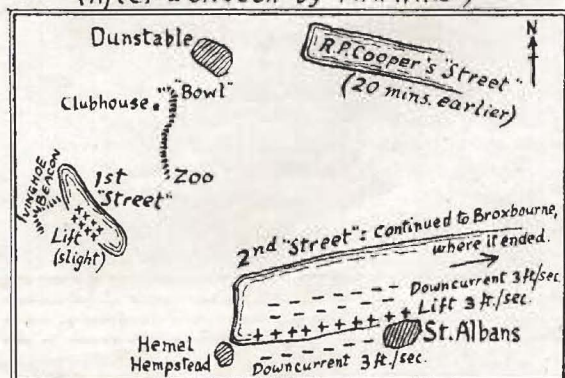 (After a sketch by
Dunstable
N
R.P. Cooper's "Street"
(20 mins. earlier)
"Bowl"
Clubhouse
IVINGHOE
BEACON
1st
"Street"
Zoo
Lift
(slight)
2nd "Street": continued to Broxbourne,
where it ended.
Downcurrent 3 ft/sec.
Lift 3 ft./sec.
St. Albans
Hemel
Hempstead
Downcurrent 3 ft./sec.